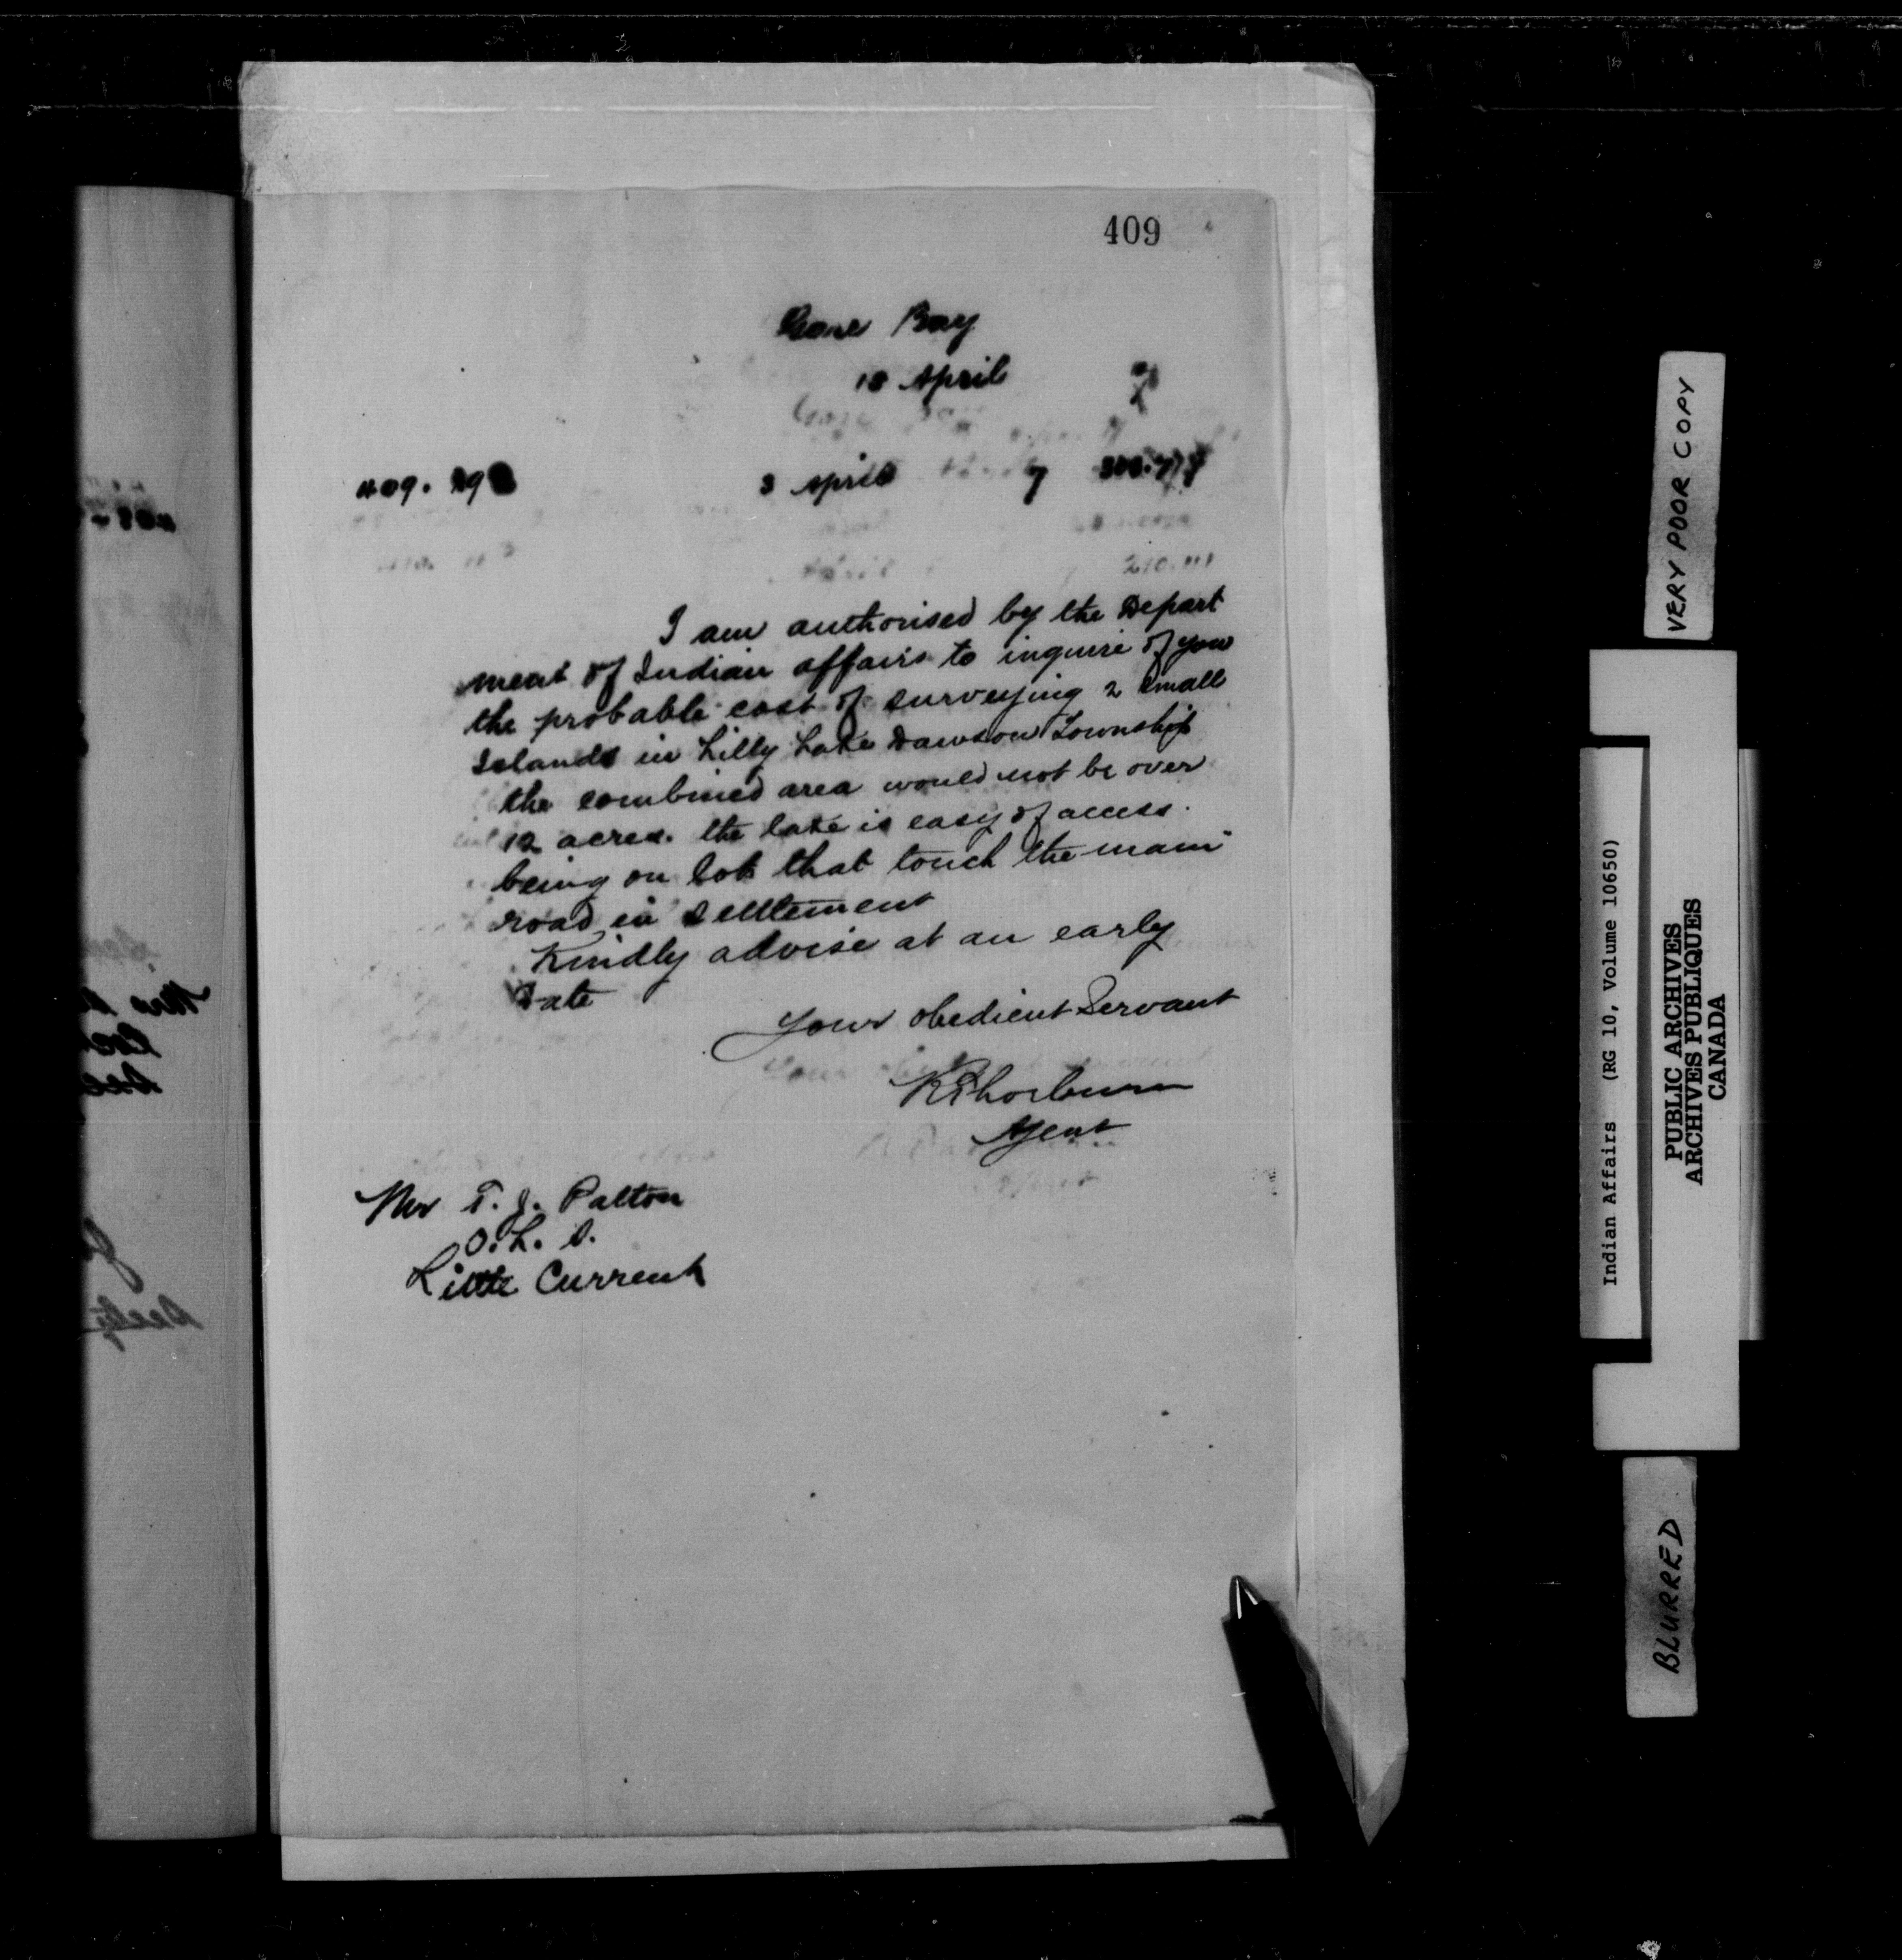 409
Gore Bay
18 April 7
409. 29
3 April 7
I am authorised by the Depart
ment of Indian affairs to inquire of you
the probable cost of surveying 2 small
Islands in Lilly Lake Dawson Township
the combined area would not be over
12 acres. the lake is easy of access.
being on lots that touch the main
road in settlement
Kindly advise at an early
date
Your obedient Servant
R Thorburn
Agent
Mr T. J. Patton
O. L. S.
Little Current
VERY POOR COPY
Indian Affairs (RG 10, Volume 10650)
PUBLIC ARCHIVES
ARCHIVES PUBLIQUES
CANADA
BLURRED